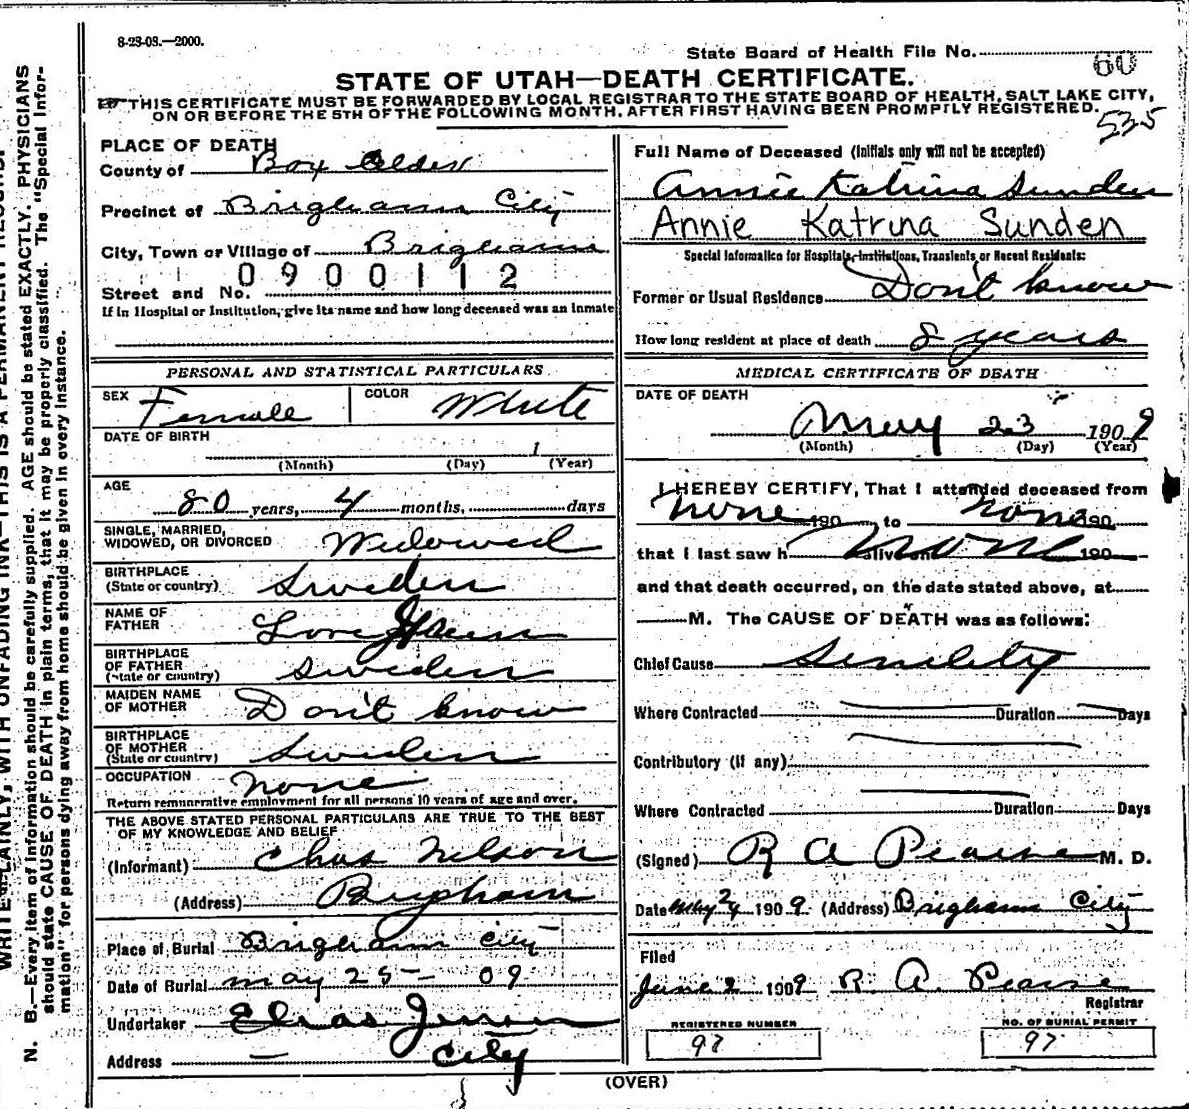 8-23-08.—2000.
State Board of Health File No. 60
STATE OF UTAH—DEATH CERTIFICATE.
THIS CERTIFICATE MUST BE FORWARDED BY LOCAL REGISTRAR TO THE STATE BOARD OF HEALTH, SALT LAKE CITY,
ON OR BEFORE THE 5TH OF THE FOLLOWING MONTH, AFTER FIRST HAVING BEEN PROMPTLY REGISTERED.
535
PLACE OF DEATH
County of Box Elder
Precinct of Brigham City
City, Town or Village of Brigham
0900112
Street and No.
If in Hospital or Institution, give its name and how long deceased was an inmate
Full Name of Deceased (Initials only will not be accepted)
Annie Katrina Sunden
Annie Katrina Sunden
Special Information for Hospitals, Institutions, Transients or Recent Residents:
Former or Usual Residence Don't know
How long resident at place of death 8 years
PERSONAL AND STATISTICAL PARTICULARS
SEX Female COLOR White
DATE OF BIRTH
1
(Month) (Day) (Year)
AGE
80 years, 4 months, days
SINGLE, MARRIED,
WIDOWED, OR DIVORCED Widowed
BIRTHPLACE
(State or country) Sweden
NAME OF
FATHER
BIRTHPLACE
OF FATHER
(State or country) Sweden
MAIDEN NAME
OF MOTHER Don't know
BIRTHPLACE
OF MOTHER
(State or country) Sweden
OCCUPATION None
Return remunerative employment for all persons 10 years of age and over.
THE ABOVE STATED PERSONAL PARTICULARS ARE TRUE TO THE BEST
OF MY KNOWLEDGE AND BELIEF
(Informant) Chas Nelson
(Address) Brigham
Place of Burial Brigham City
Date of Burial May 25 — 09
Undertaker Elias Jensen
Address — City
MEDICAL CERTIFICATE OF DEATH
DATE OF DEATH
May 23 1909
(Month) (Day) (Year)
I HEREBY CERTIFY, That I attended deceased from
none 190 , to none 190
that I last saw h alive on none 190
and that death occurred, on the date stated above, at
M. The CAUSE OF DEATH was as follows:
Chief Cause Senility
Where Contracted Duration Days
Contributory (if any)
Where Contracted Duration Days
(Signed) R A Pearse M. D.
Date May 24 1909 (Address) Brigham City
Filed
June 2 1909 R. A. Pearse
Registrar
REGISTERED NUMBER
97
NO. OF BURIAL PERMIT
97
(OVER)
WRITE PLAINLY, WITH UNFADING INK—THIS IS A PERMANENT RECORD.
N. B.—Every item of information should be carefully supplied. AGE should be stated EXACTLY. PHYSICIANS
should state CAUSE OF DEATH in plain terms, that it may be properly classified. The "Special Infor-
mation" for persons dying away from home should be given in every instance.